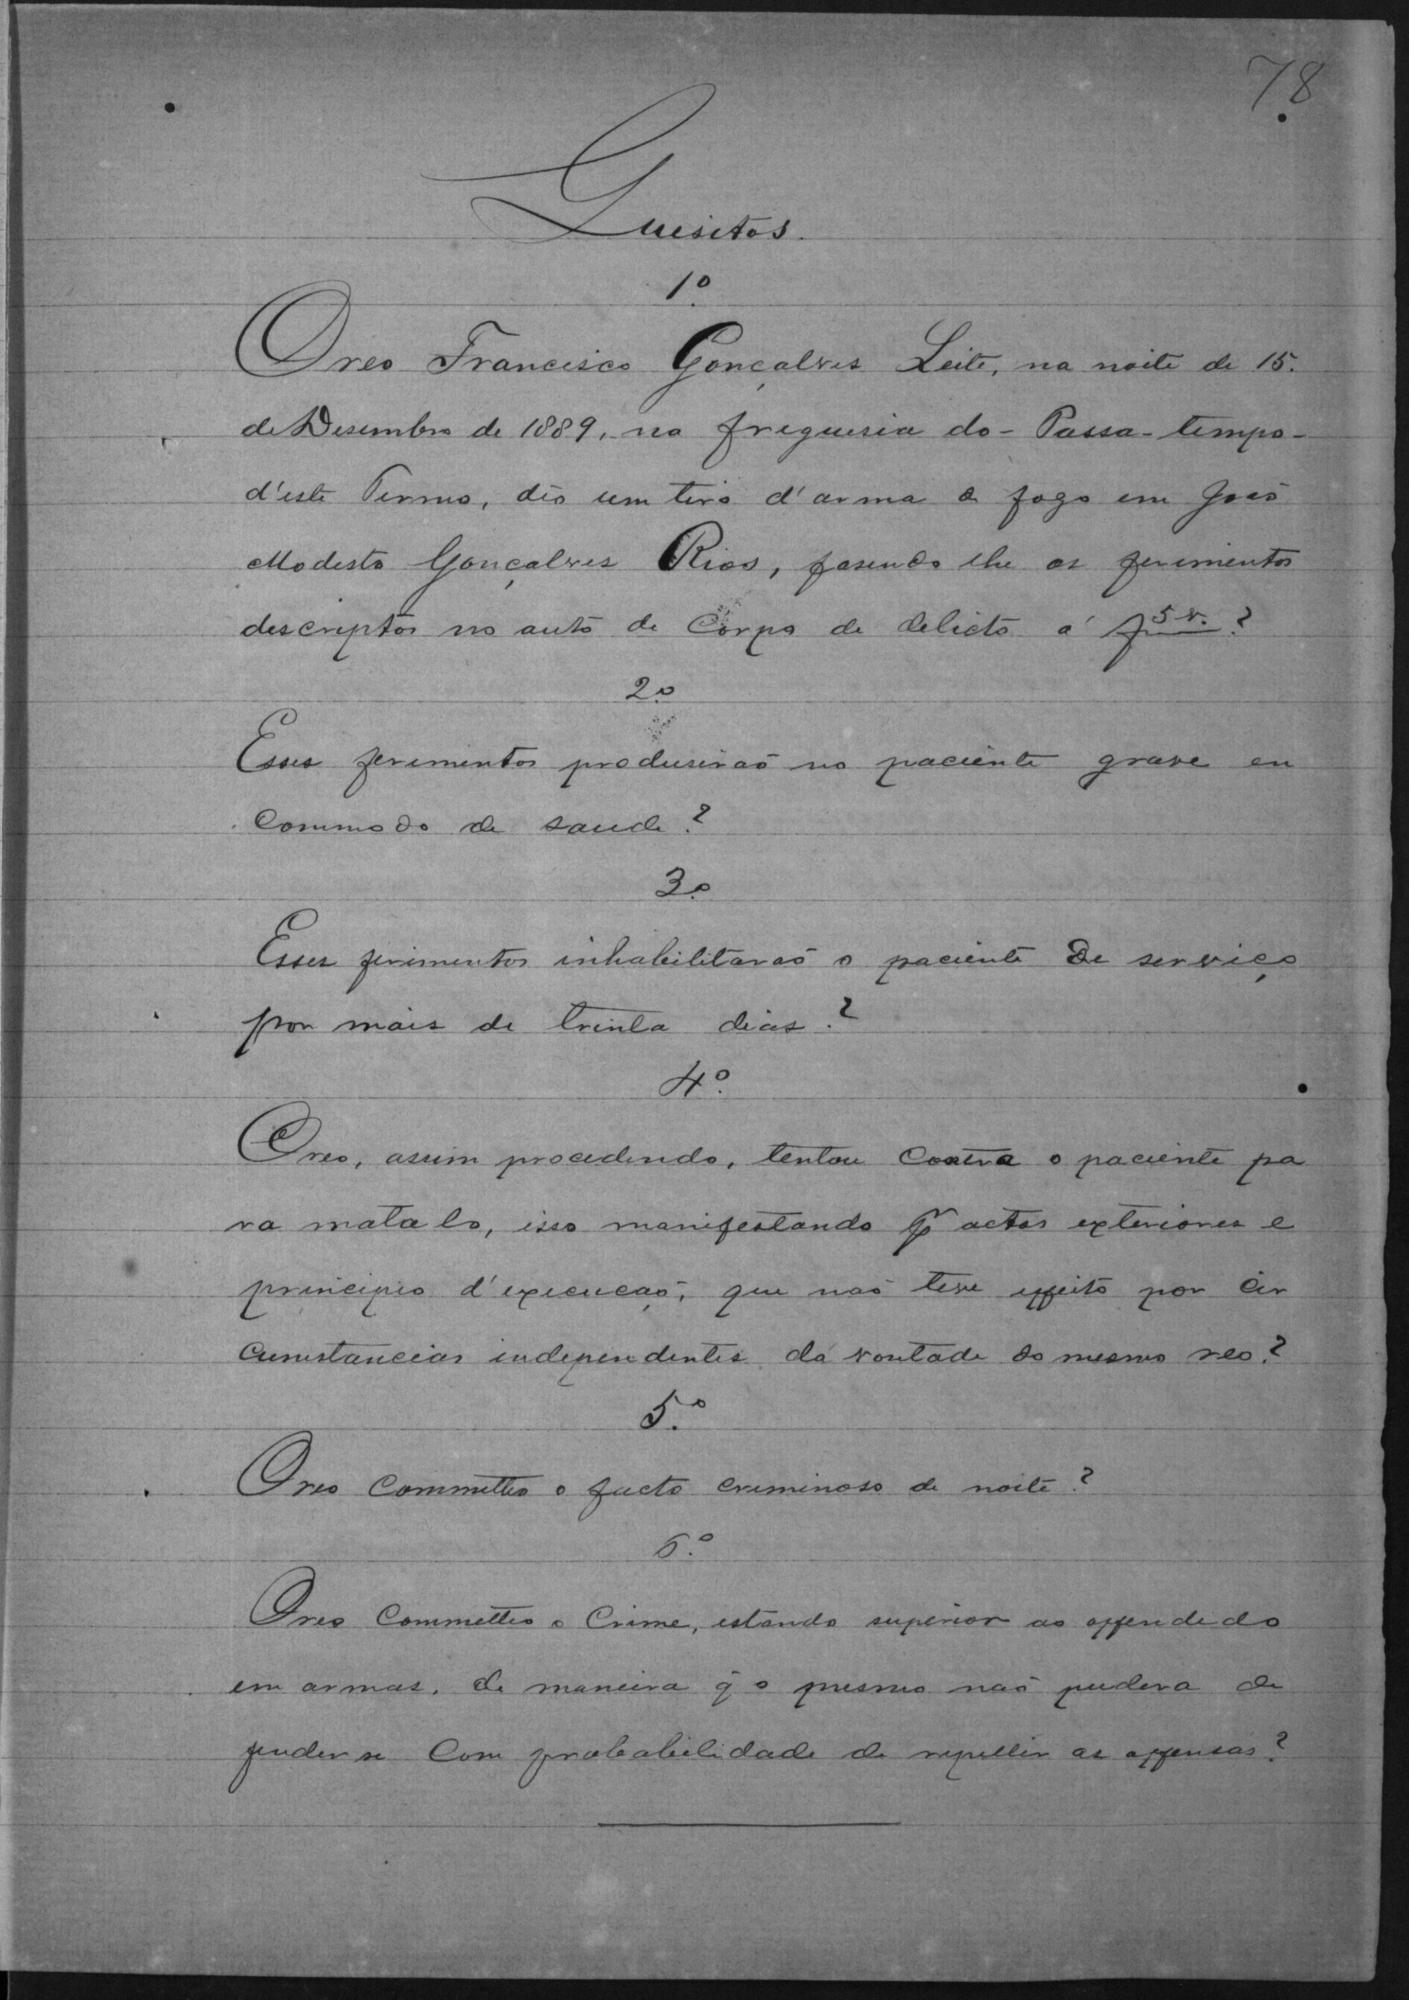 78
Quisitos.
1º
O reo Francisco Gonçalves Leite, na noite de 15.
de Desembro de 1889, na freguesia do - Passa-tempo -
d'este Termo, dêo um tiro d'arma a fogo em José
Modesto Gonçalves Rios, fasendo lhe os ferimentos
descriptos no auto de Corpo de delicto a' f 5 v. ?
2º
Esses ferimentos produsiraõ no paciente grave en
commodo de saude ?
3º
Esses ferimentos inhabilitaraõ o paciente de serviço
por mais de trinta dias ?
4º
O reo, assim procedendo, tentou contra o paciente pa
ra matalo, isso manifestando p actos exteriores e
principio d'execuçaõ, que naõ teve effeito por cir
cunstancias independentes da vontade do mesmo reo ?
5º
O reo Commetteo o facto criminoso de noite ?
6º
O reo Commetteo o Crime, estando superior ao offendido
em armas, de maneira q̃ o mesmo naõ pudera de
fender se Com probabilidade de repellir as offensas ?